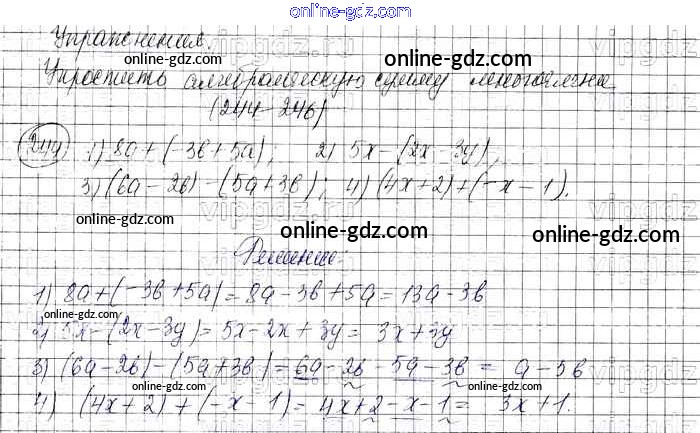 online-gdz.com
Упражнения.
online-gdz.com
Упростить алгебраическую сумму многочлена
(244-246)
online-gdz.com
244) 1) 8a+(-3b+5a); 2) 5x-(2x-3y);
3) (6a-2b)-(5a+3b); 4) (4x+2)+(-x-1).
online-gdz.com online-gdz.com
Решение.
1) 8a+(-3b+5a)=8a-3b+5a=13a-3b
online-gdz.com online-gdz.com
2) 5x-(2x-3y)=5x-2x+3y=3x+3y
3) (6a-2b)-(5a+3b)=6a-2b-5a-3b=a-5b
online-gdz.com online-gdz.com
4) (4x+2)+(-x-1)=4x+2-x-1=3x+1.